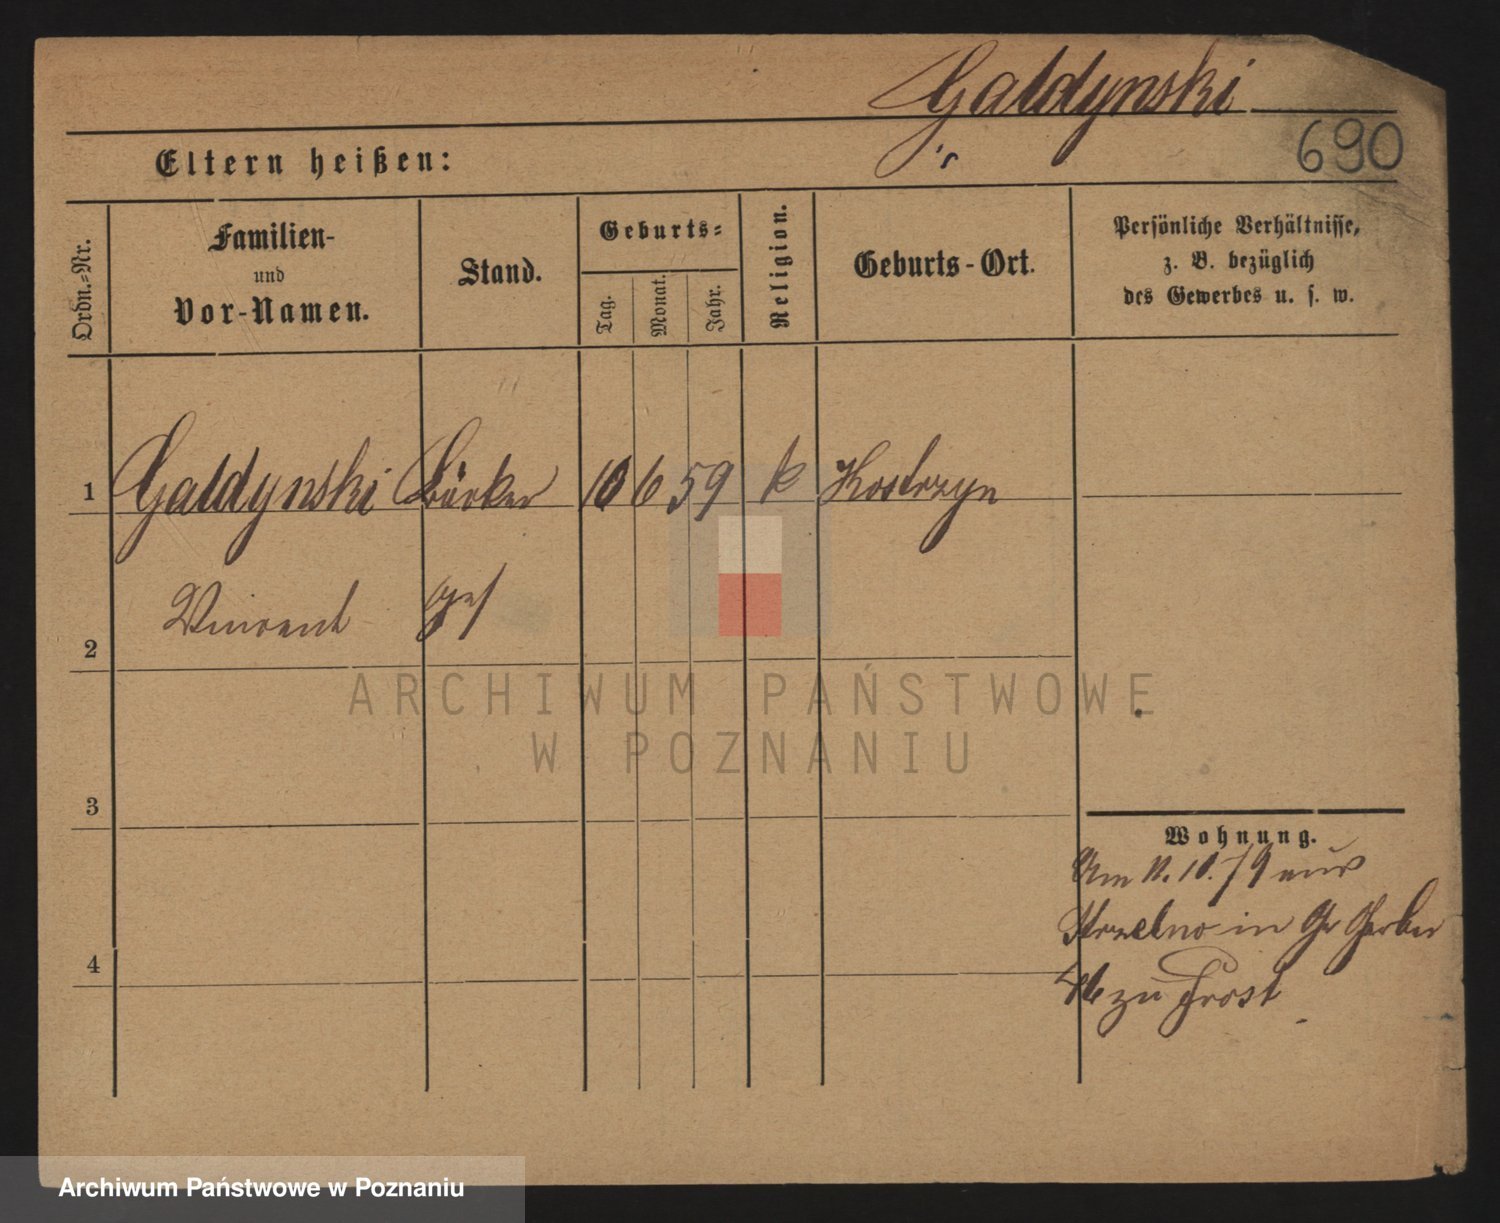 Galdynski
690
Eltern heißen:
Ordn.-Nr.
Familien-
und
Vor-Namen.
Stand.
Geburts-
Tag.
Monat.
Jahr.
Religion.
Geburts-Ort.
Persönliche Verhältnisse,
z. B. bezüglich
des Gewerbes u. s. w.
1 Galdynski Bäcker 10 6 59 k Kostrzyn
Vincent ges
2
3
4
Wohnung.
Am 11. 10. 79 aus
Strzelno in Gr Gerber
46 zu Frost
ARCHIWUM PAŃSTWOWE
W POZNANIU
Archiwum Państwowe w Poznaniu